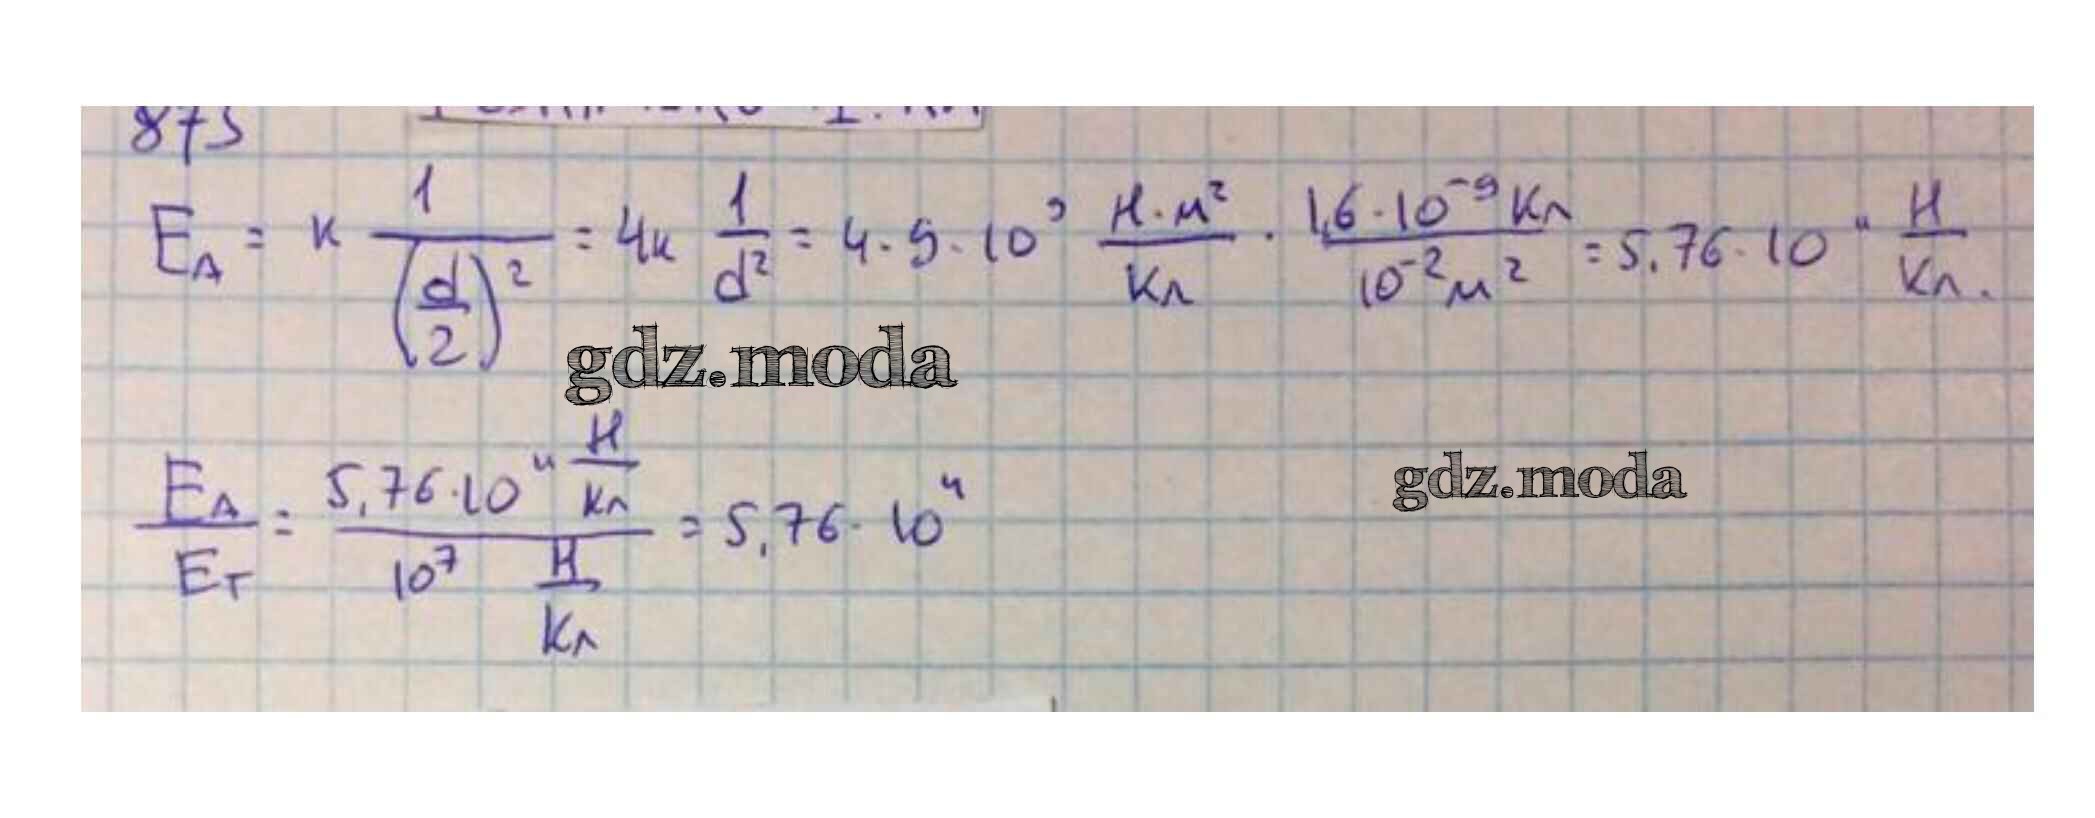 873
E_A = к 1/(d/2)² = 4к 1/d² = 4 · 9 · 10⁹ Н·м²/Кл · 1,6·10⁻⁹ Кл/10⁻² м² = 5,76 · 10¹¹ Н/Кл.
gdz.moda
E_A/E_T = 5,76·10¹¹ Н/Кл / 10⁷ Н/Кл = 5,76 · 10⁴
gdz.moda